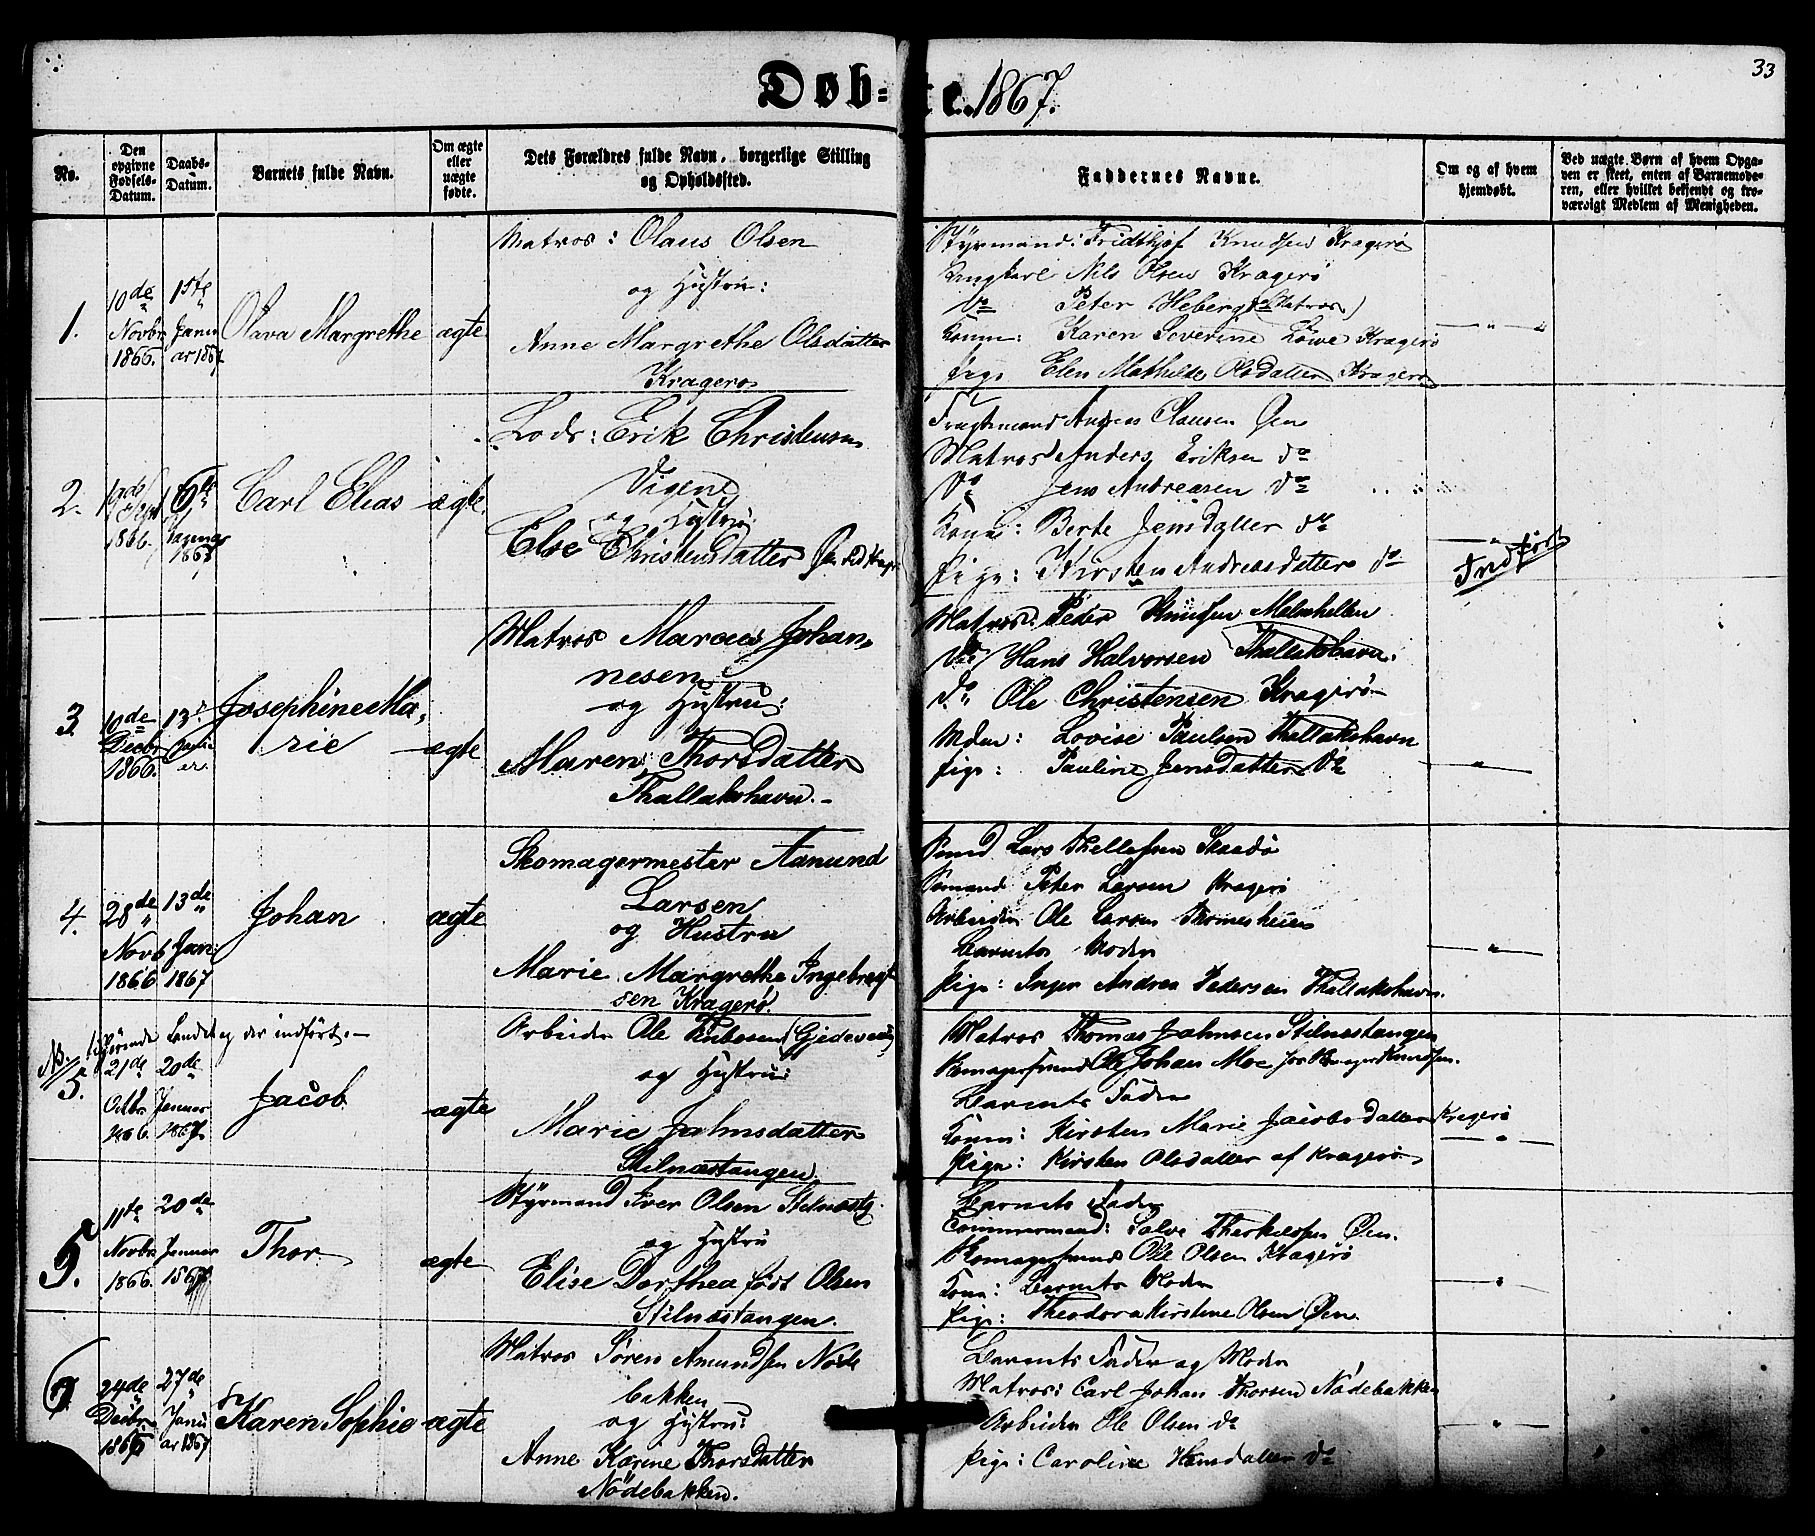 Døb=te. 1867.
33
No.
Den opgivne Fødsels-Datum.
Daabs-Datum.
Barnets fulde Navn.
Om ægte eller uægte fødte.
Dets Forældres fulde Navn, borgerlige Stilling og Opholdssted.
Faddernes Navne.
Om og af hvem hjemdøbt.
Ved uægte Børn af hvem Opga-
ven er skeet, enten af Barnemode-
ren, eller hvilket bekjendt og tro-
værdigt Medlem af Menigheden.
1.
10de Novbr 1866.
1ste Janu ar 1867
Olava Margrethe
ægte
Matros: Olaus Olsen
og Hustru:
Anne Margrethe Olsdatter
Kragerø
Styrmand: Fridthjof Knudsen Kragerø
Ungkarl Nils Olsen Kragerø
Do Peter Heberg (Matros)
Konen: Karen Severine Löwe Kragerø
Pige Elen Mathilde Olsdatter Kragerø
2.
1866.
6te
Carl Elias
ægte
Lods: Erik Christensen
og Hustru:
Else Christensdatter
Andreas Clausen Øen
Matros Anders Eriksen do
Do Jens Andreasen do
Kone: Berte Jensdatter do
Pige: Kirsten Andreasdatter do
Indført
3.
10de Decbr 1866.
13de
Josephine Ma-
rie
ægte
Matros Marcus Johan-
nesen
og Hustru:
Maren Thorsdatter
Thallakshavn.
Matros: Peder Knudsen
Do Hans Halvorsen Thallakshavn.
do Ole Christensen Kragerø
Mdm: Lovise Paulsen Thallakshavn
Pige: Pauline Jensdatter Do
4.
28de Novb 1866
13de Jan: 1867
Johan
ægte
Skomagermester Aanund
Larsen
og Hustru
Marie Margrethe Ingebregt
sen Kragerø.
Lars Thellefsen Skaadø
Sømand Peter Larsen Kragerø
Arbeider Ole Larsen
Barnets Moder
Pige: Inger Andrea Pedersen Thallakshavn.
NB. Landet og der indført.
5.
21de Octbr 1866.
20de Januar 1867.
Jacob
ægte
Arbeider Ole
og Hustru:
Marie Jahnsdatter
Stilnæstangen.
Matros Thomas Jahnsen Stilnæstangen
Ole Johan Moe
Barnets Fader
Konen: Kirsten Marie Jacobsdatter Kragerø
Pige: Kirsten Olsdatter af Kragerø
5.
11te Novbr 1866.
20de Januar 1867
Thor
ægte
Styrmand Iver Olsen Stilnæstg.
og Hustru
Elise Dorthea født Olsen
Stilnæstangen.
Barnets Fader
Tømmermand: Salve Therkelsen Øen.
Skomagersvend Ole Olsen Kragerø
Kone: Barnets Moder
Pige: Theodora Kirstine Olsen Øen.
6
24de Decbr 1866
27de Janu ar 1867
Karen Sophie
ægte
Matros Søren Amundsen Nøde
bakken
og Hustru:
Anne Karine Thorsdatter
Nødebakken.
Barnets Fader og Moder
Matros: Carl Johan Thorsen Nødebakken
Arbeider Ole Olsen do
Pige: Caroline Hansdatter do